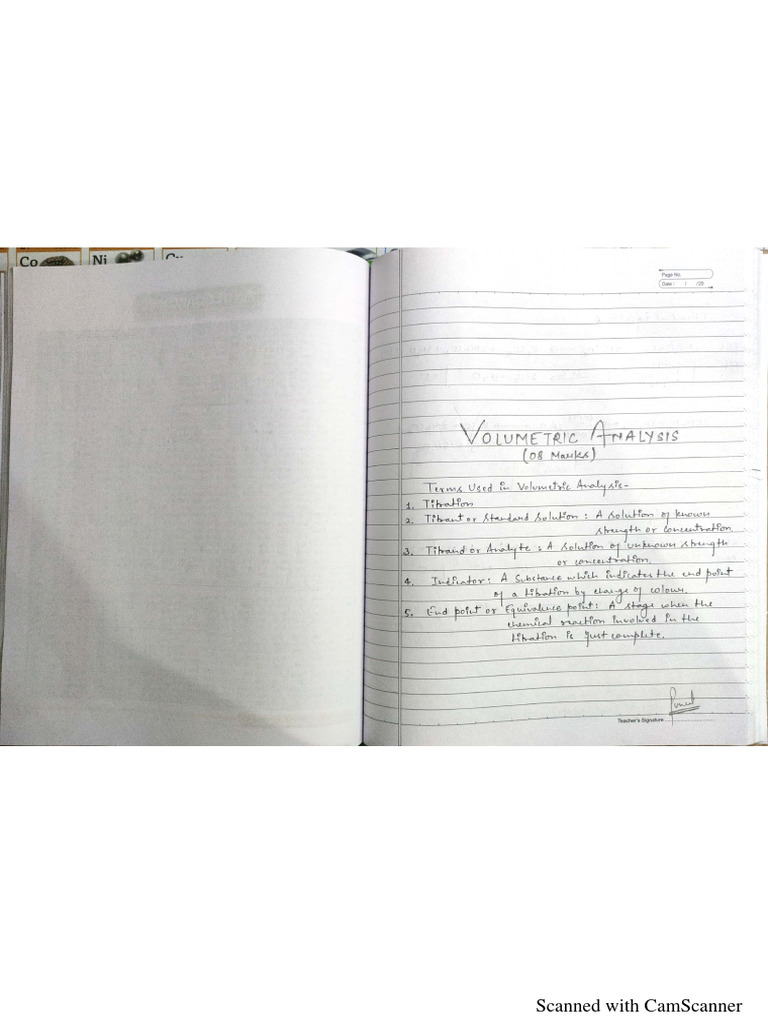 Co Ni Cu
Page No.
Date : / /20
VOLUMETRIC ANALYSIS
(08 Marks)
Terms Used in Volumetric Analysis-
1. Titration
2. Titrant or Standard Solution : A Solution of known
strength or concentration.
3. Titrand or Analyte : A Solution of unknown strength
or concentration.
4. Indicator : A Substance which indicates the end point
of a titration by change of colour.
5. End point or Equivalence point : A stage when the
chemical reaction involved in the
titration is just complete.
Teacher's Signature
Scanned with CamScanner